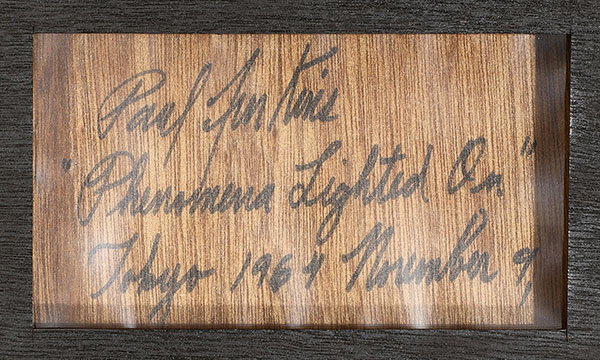 Paul Jenkins
"Phenomena Lighted On"
Tokyo 1964 November 9,